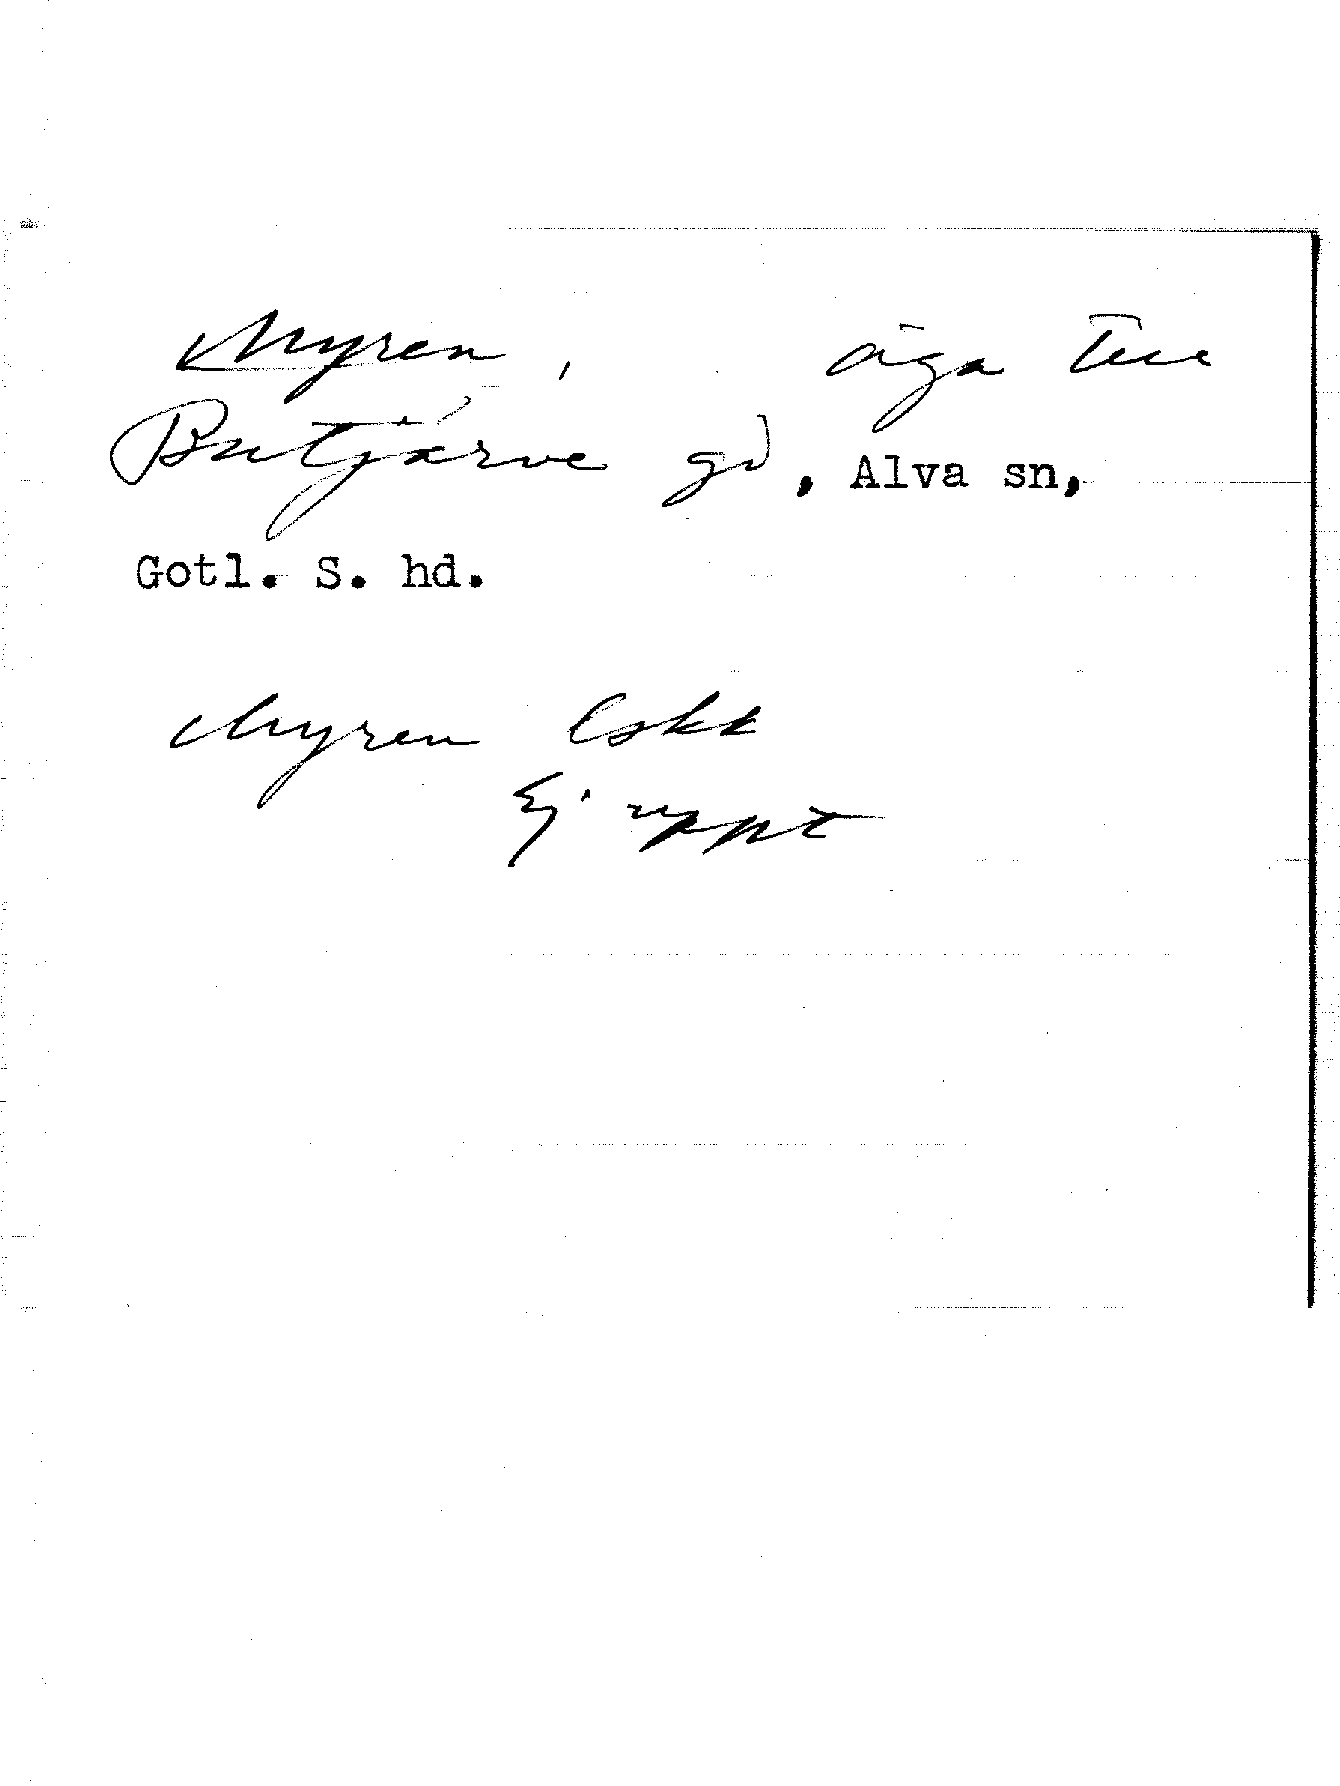 Myren, äga till
Butjärve gd, Alva sn,
Gotl. S. hd.
Myren Eskk
Ej uppt